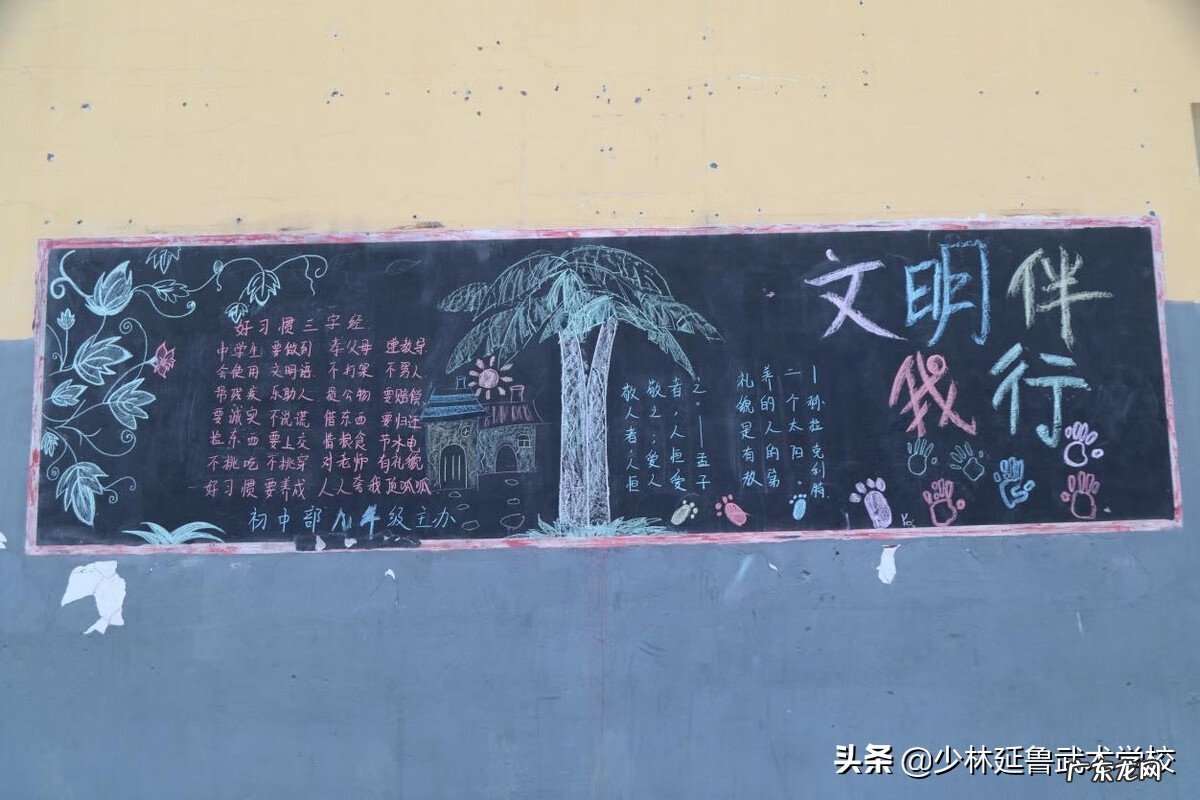 文明伴
我行
好习惯三字经
中学生 要做到 孝父母 遵教导
会使用 文明语 不打架 不骂人
帮残疾 乐助人 损公物 要赔偿
要诚实 不说谎 借东西 要归还
捡东西 要上交 惜粮食 节水电
不挑吃 不挑穿 对老师 有礼貌
好习惯 要养成 人人夸我顶呱呱
初中部 年级主办
敬人者,人恒
敬之;爱人
者,人恒爱
之。——孟子
礼貌是有教
养的人的第
二个太阳。
—赫拉克利特
头条 @少林延鲁武术学校
广东龙网